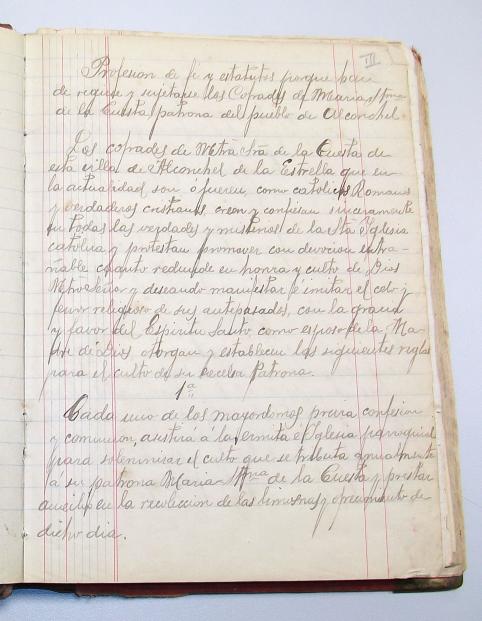 III
Profesion de fé y estatutos porque han
de regirse y sujetarse los Cofrades de Maria Stma
de la Cuesta patrona del pueblo de Alconchel.
Los cofrades de Ntra Sra de la Cuesta de
esta villa de Alconchel de la Estrella que en
la actualidad son ó fueren, como catolicos Romanos
y verdaderos cristianos, creen y confiesan sinceramente
en todas las verdades y misterios de la Sta Iglesia
catolica y protestan promover con devocion entra-
ñable cuanto redunde en honra y culto de Dios
Ntro Señor y deseando manifestar é imitar el celo y
fervor religioso de sus antepasados, con la gracia
y favor del Espiritu Santo como esposo de la Ma-
dre de Dios otorgan y establecen las siguientes reglas
para el culto de su excelsa Patrona.
1ª
Cada uno de los mayordomos previa confesion
y comunion, asistirá á la ermita é Iglesia parroquial
para solemnizar el culto que se tributa anualmente
a su patrona Maria Stma de la Cuesta y prestar
auxilio en la recoleccion de las limosnas y ofrecimiento de
dicho dia.